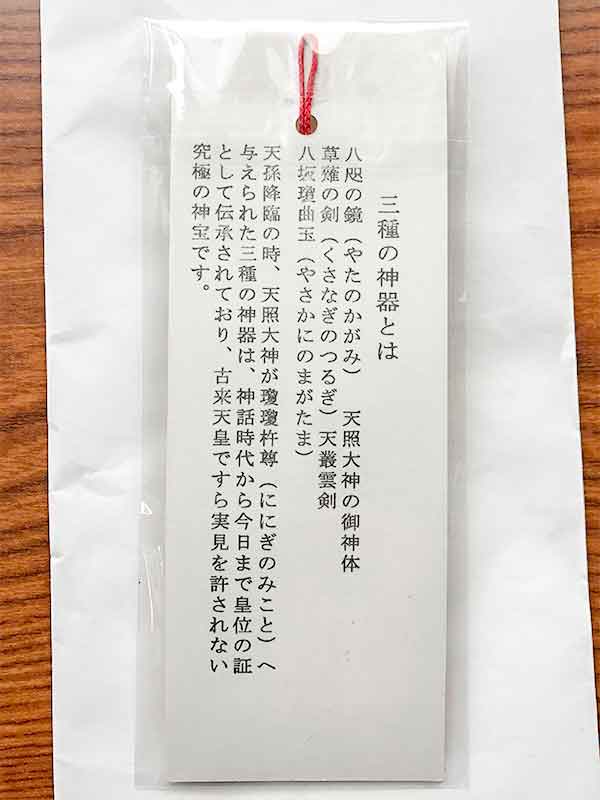 三種の神器とは
八咫の鏡(やたのかがみ) 天照大神の御神体
草薙の剣(くさなぎのつるぎ)天叢雲剣
八坂瓊曲玉(やさかにのまがたま)
天孫降臨の時、天照大神が瓊瓊杵尊(ににぎのみこと)へ
与えられた三種の神器は、神話時代から今日まで皇位の証
として伝承されており、古来天皇ですら実見を許されない
究極の神宝です。